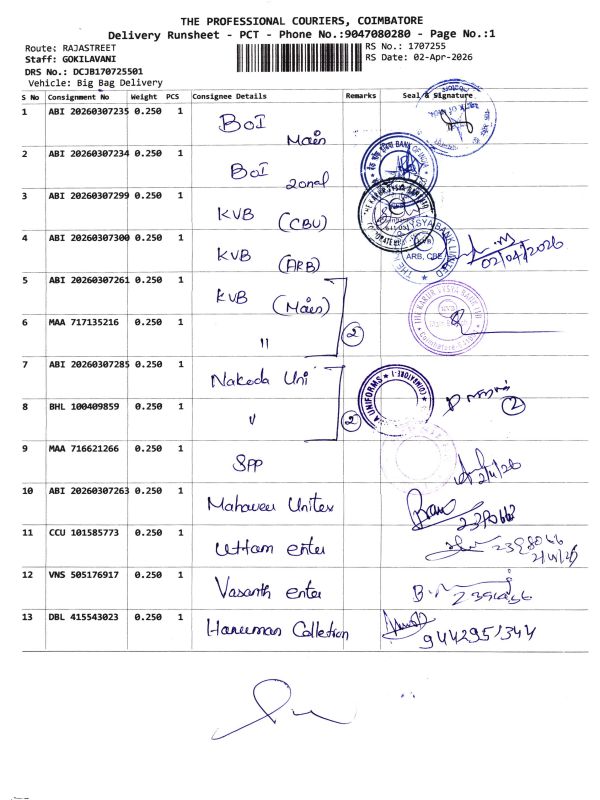 THE PROFESSIONAL COURIERS, COIMBATORE
Delivery Runsheet - PCT - Phone No.:9047080280 - Page No.:1
Route: RAJASTREET
RS No.: 1707255
Staff: GOKILAVANI
RS Date: 02-Apr-2026
DRS No.: DCJB170725501
Vehicle: Big Bag Delivery
S No Consignment No Weight PCS Consignee Details Remarks Seal & Signature
1 ABI 20260307235 0.250 1 BOI Main
2 ABI 20260307234 0.250 1 BOI zonal
BANK OF INDIA
3 ABI 20260307299 0.250 1 KVB (CBU)
4 ABI 20260307300 0.250 1 KVB (ARB)
ARB, CBE
02/04/2026
5 ABI 20260307261 0.250 1 KVB (Main)
THE KARUR VYSYA BANK LTD
6 MAA 717135216 0.250 1 11 2
7 ABI 20260307285 0.250 1 Nakoda Uni
UNIFORMS
8 BHL 100409859 0.250 1 11 2
2
9 MAA 716621266 0.250 1 SPP
2/4/26
10 ABI 20260307263 0.250 1 Mahaveer Unitex
11 CCU 101585773 0.250 1 Uttam enter
12 VNS 505176917 0.250 1 Vasanth enter
13 DBL 415543023 0.250 1 Hanuman Collection
9442951344